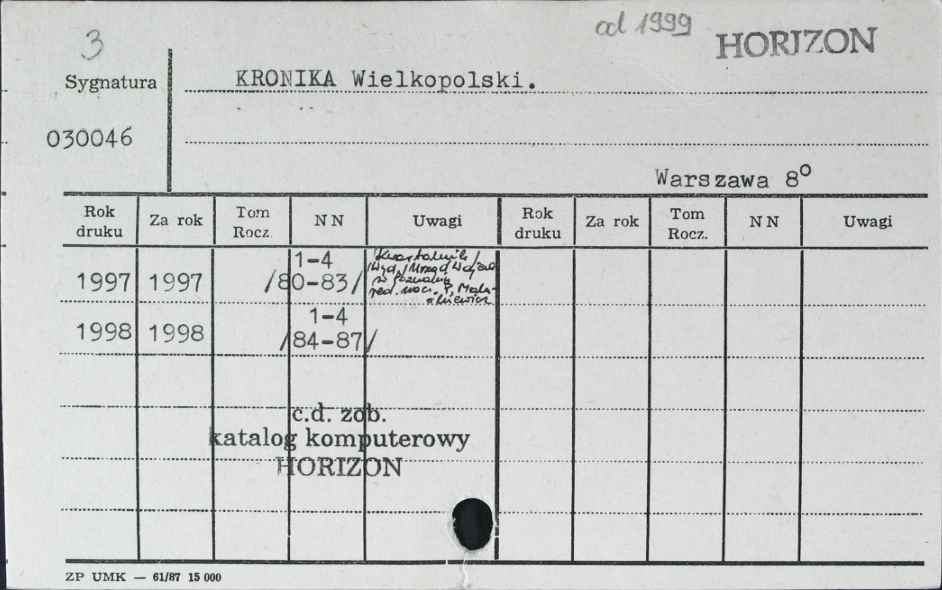 3
od 1999
HORIZON
Sygnatura
KRONIKA Wielkopolski.
030046
Warszawa 8°
Rok druku Za rok Tom Rocz. NN Uwagi Rok druku Za rok Tom Rocz. NN Uwagi
1-4
1997 1997 /80-83/
/Kwartalnik/
Wyd. Urząd Wojew.
w Poznaniu
red. nacz. P.
1-4
1998 1998 /84-87/
c.d. zob.
katalog komputerowy
HORIZON
ZP UMK — 61/87 15 000